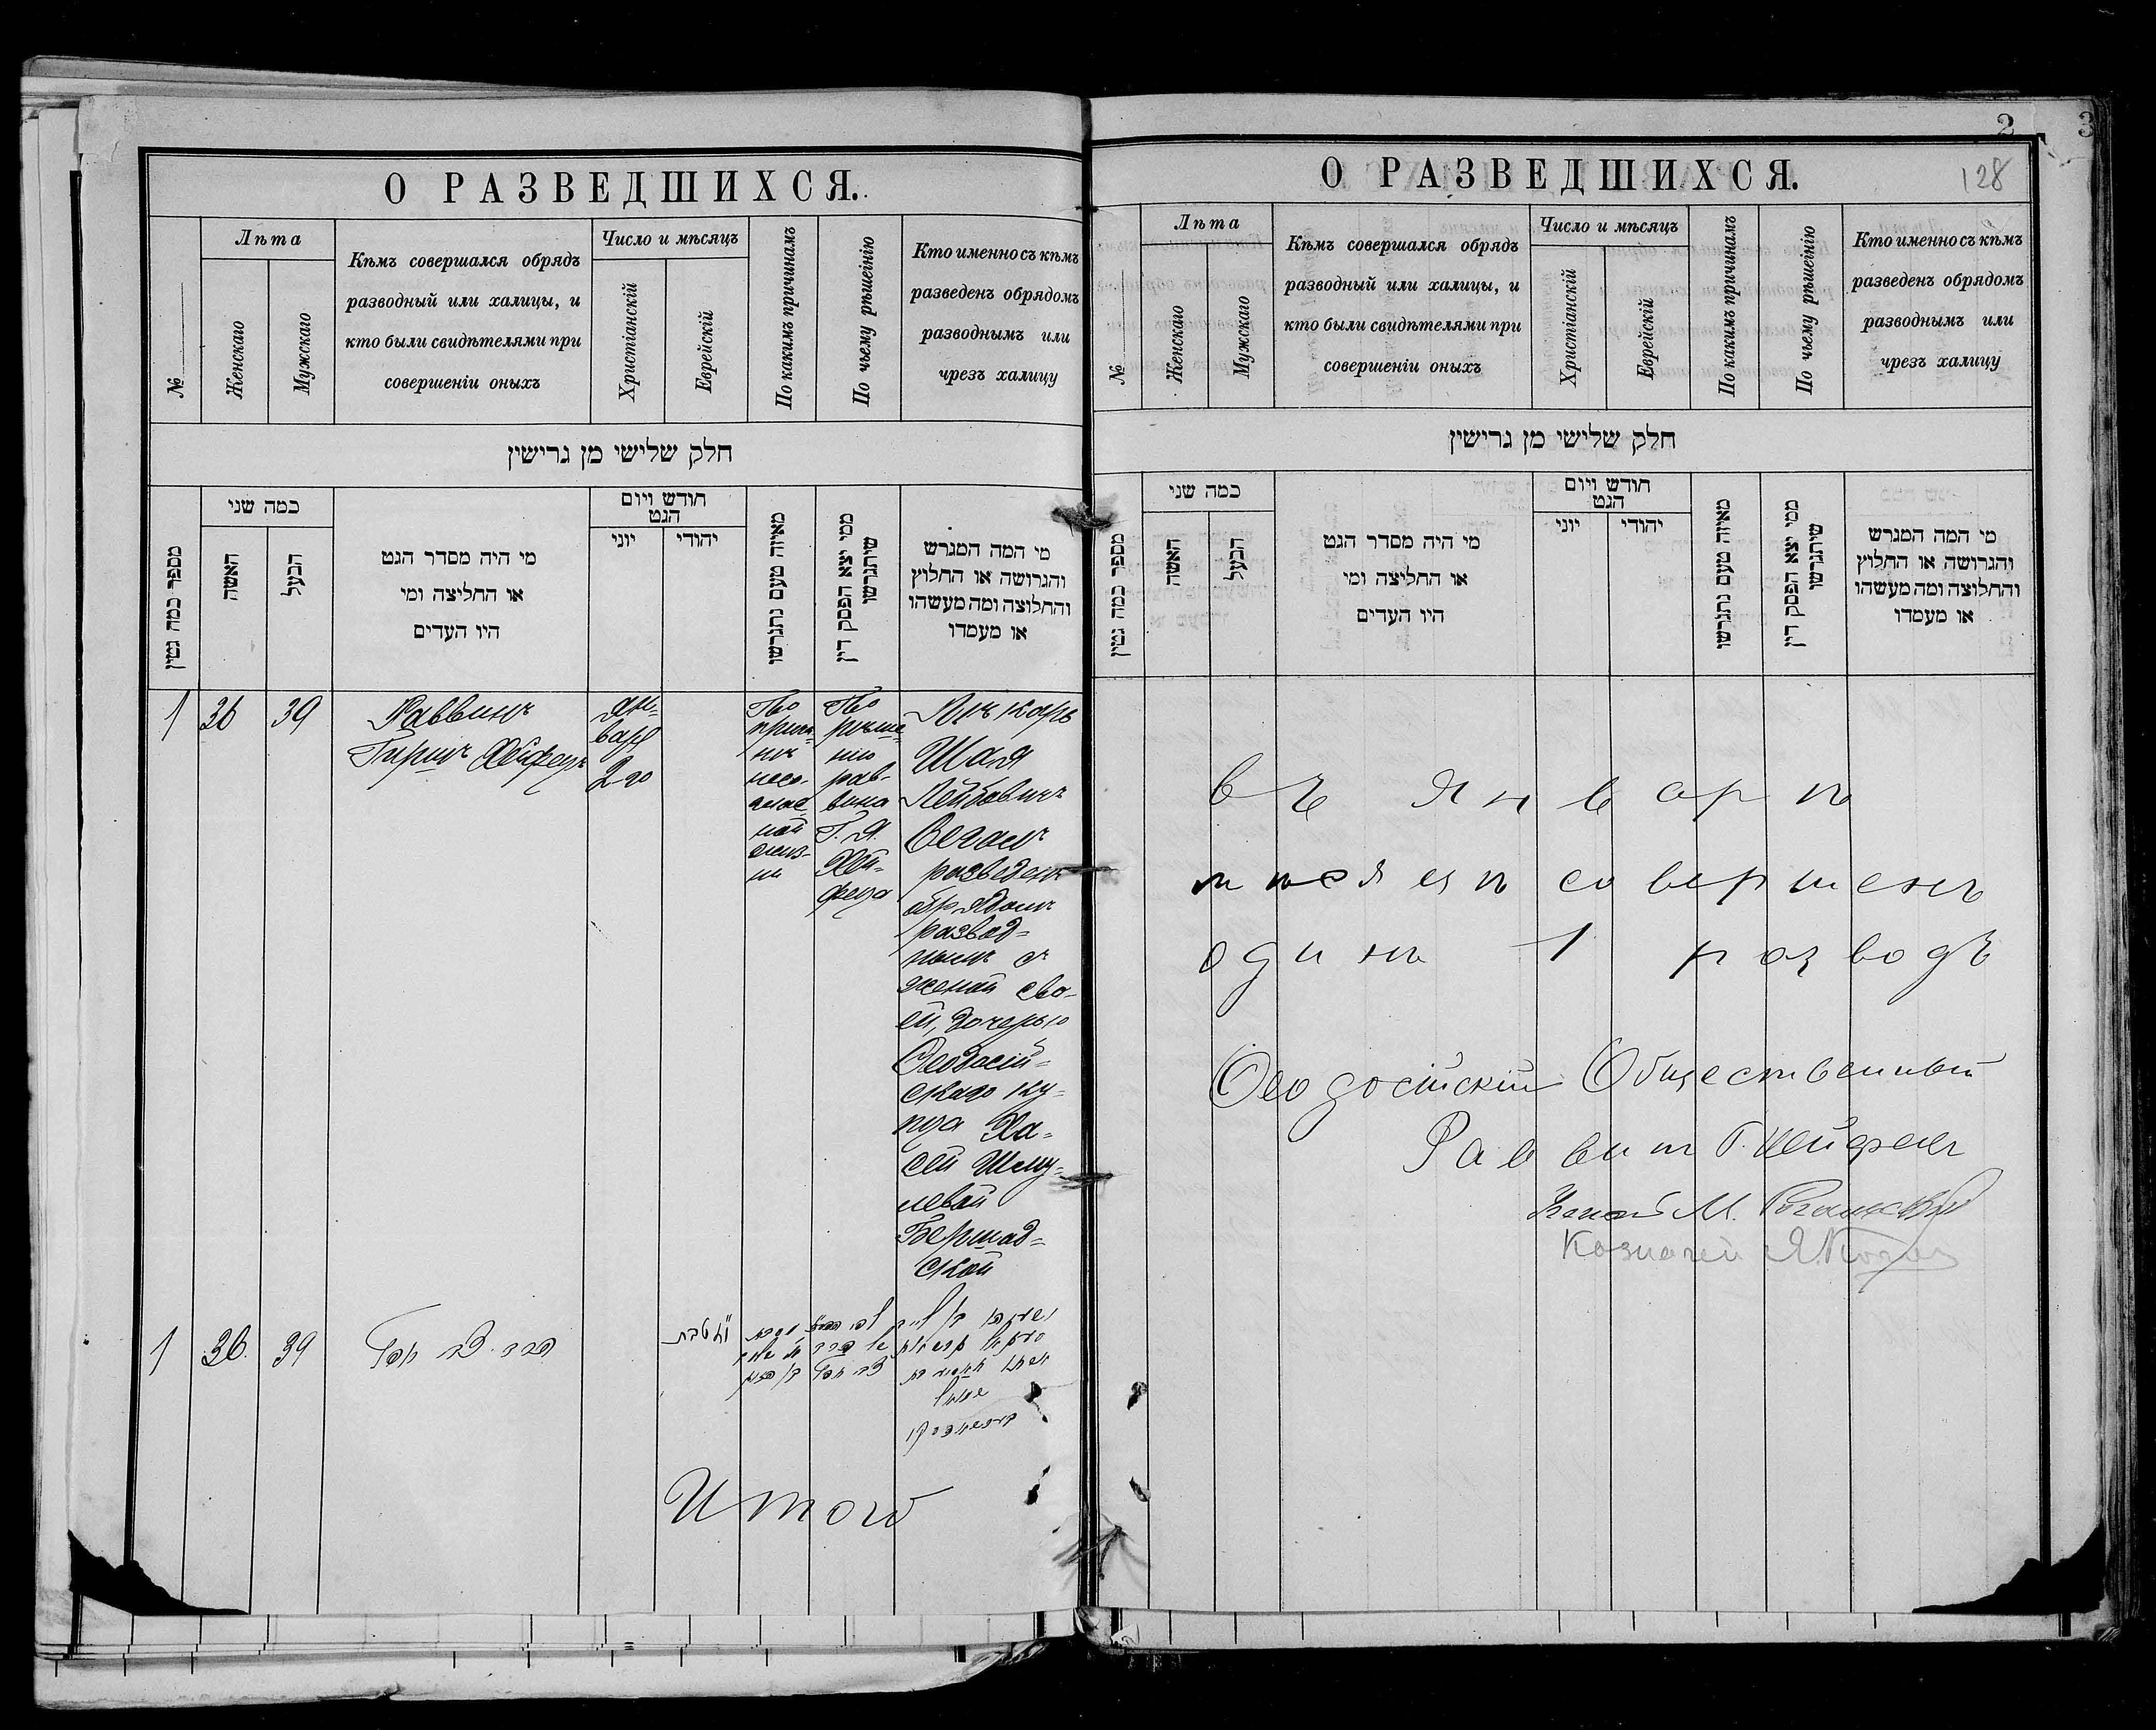 О РАЗВЕДШИХСЯ.
№
Лѣта
Женскаго
Мужскаго
Кѣмъ совершался обрядъ
разводный или халицы, и
кто были свидѣтелями при
совершеніи оныхъ
Число и мѣсяцъ
Христіанскій
Еврейскій
По какимъ причинамъ
По чьему рѣшеінію
Кто именно съ кѣмъ
разведенъ обрядомъ
разводнымъ или
чрезъ халицу
חלק שלישי מן גרישין
מספר כמה גטין
כמה שני
האשה
הבעל
מי היה מסדר הגט
או החליצה ומי
היו העדים
חודש ויום
הגט
יוני
יהודי
מאיזה טעם נתגרשו
ממי יצא הפסק דין
שיתגרשו
מי המה המגרש
והגרושה או החלוץ
והחלוצה ומה מעשהו
או מעמדו
1
36
39
Раввинъ
Гиршъ Хейфецъ
Ян-
варя
2 го
По
причи-
нѣ
несо-
глас-
ной
жиз-
ни
По
рѣше-
нію
рав-
вина
Г. Я.
Хей-
феца
Шая
Лейбовичъ
разведенъ
обрядомъ
развод-
нымъ съ
женой сво-
ей, дочерью
Ѳеодосій-
скаго ку-
пца Ха-
сей Шму-
левой
Бершад-
ской
1
36
39
טבת
Итого
2
3
128
О РАЗВЕДШИХСЯ.
№
Лѣта
Женскаго
Мужскаго
Кѣмъ совершался обрядъ
разводный или халицы, и
кто были свидѣтелями при
совершеніи оныхъ
Число и мѣсяцъ
Христіанскій
Еврейскій
По какимъ причинамъ
По чьему рѣшеінію
Кто именно съ кѣмъ
разведенъ обрядомъ
разводнымъ или
чрезъ халицу
חלק שלישי מן גרישין
מספר כמה גטין
כמה שני
האשה
הבעל
מי היה מסדר הגט
או החליצה ומי
היו העדים
חודש ויום
הגט
יוני
יהודי
מאיזה טעם נתגרשו
ממי יצא הפסק דין
שיתגרשו
מי המה המגרש
והגרושה או החלוץ
והחלוצה ומה מעשהו
או מעמדו
въ январѣ
мѣсяцѣ совершенъ
одинъ 1 разводъ
Ѳеодосійскій Общественный
Раввинъ Г. Хейфецъ
М.
Казначей Я.